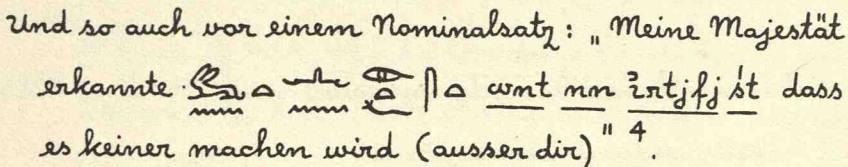 Und so auch vor einem Nominalsatz: „Meine Majestät
erkannte 𓃹𓈖𓏏𓂜𓈖𓁹𓏏𓆑𓋴𓏏 wnt nn ꞽrtjfj śt dass
es keiner machen wird (ausser dir)" 4.